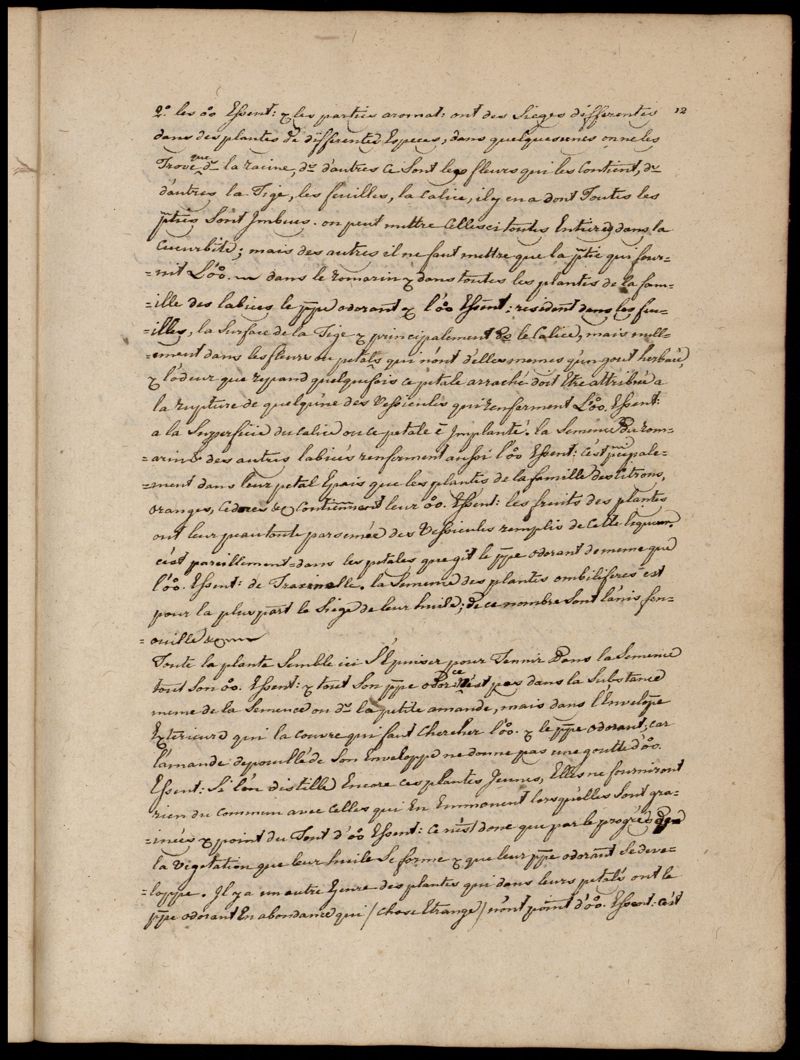 2º. les oo Essent: & les parties aromat: ont des Sieges differentes 12
dans des plantes de differentes Especes; dans quelquesunes on ne les
Trove que ds la racine, ds d'autres ce sont les fleurs qui les Contient, ds
d'autres la Tige, les feuilles, la Calice, il y en a dont Toutes les
pties Sont Jmbues. on peut mettre Celles ci toutes Entieres dans la
Cucurbite; mais des autres il ne faut mettre que la ptie qui four-
=nit L'oo. dans le romarin & dans toutes les plantes de la fam-
=ille des labiees le ppe odorant & l'oo Essent: resident dans les feu-
=illes, la Surface de la Tige & principalement le Calice, mais null-
=ement dans les fleurs ou petals qui n'ont d'elles memes qu'un gout herbau,
& l'odeur que repand quelquefois ce petale arraché doit Etre attribué a
la rupture de quelqu'une des Vessicules qui renferment L'oo. Essent:
a la Superficie du Calice ou ce petale ē Jmplanté. la Semence du rom-
=arin & des autres labiées renferment aussi l'oo Essent: c'est pñipale-
=ment dans leur petal Epais que les plantes de la famille des Citrons,
oranges, Cedres &c Contiennent leur oo. Essent: les fruits des plantes
ont leur peau toute parsemée des Vessicules remplis de Cette liqueur,
c'est pareillement dans les petales que git le ppe odorant de meme que
l'oo. Essent: de Fraxinelle. la Semence des plantes ombiliferes est
pour la pluspart le Siege de leur huile; de ce nombre Sont l'anis, fen-
=ouille &c
Toute la plante Semble ici S'Epuiser pour Fennir Dans la Semence
tout Son oo. Essent: & tout Son ppe odor: Ce n'est pas dans la Substance
meme de la Semence ou ds la petite amande, mais dans l'Envelope
Exterieure qui la Couvre qu'il faut Chercher l'oo. & le ppe odorant, car
l'amande depouillé de Son Enveloppe ne donne pas une goutte d'oo.
Essent: Si l'on distille Encore ces plantes Jeunes, Elles ne fourniront
rien du Commun avec Celles qui En Emmonent lorsqu'elles Sont gra-
=inées & point du Tout d'oo Essent: Ce n'est donc que par le progrès de
la Vigetation que leur huile Se forme & que leur ppe odorant Se deve-
=loppe. Jl y a un autre Genre des plantes qui dans leurs petals ont le
ppe odorant En abondance qui /Chose Etrange/ n'ont point d'oo. Essent: c'est